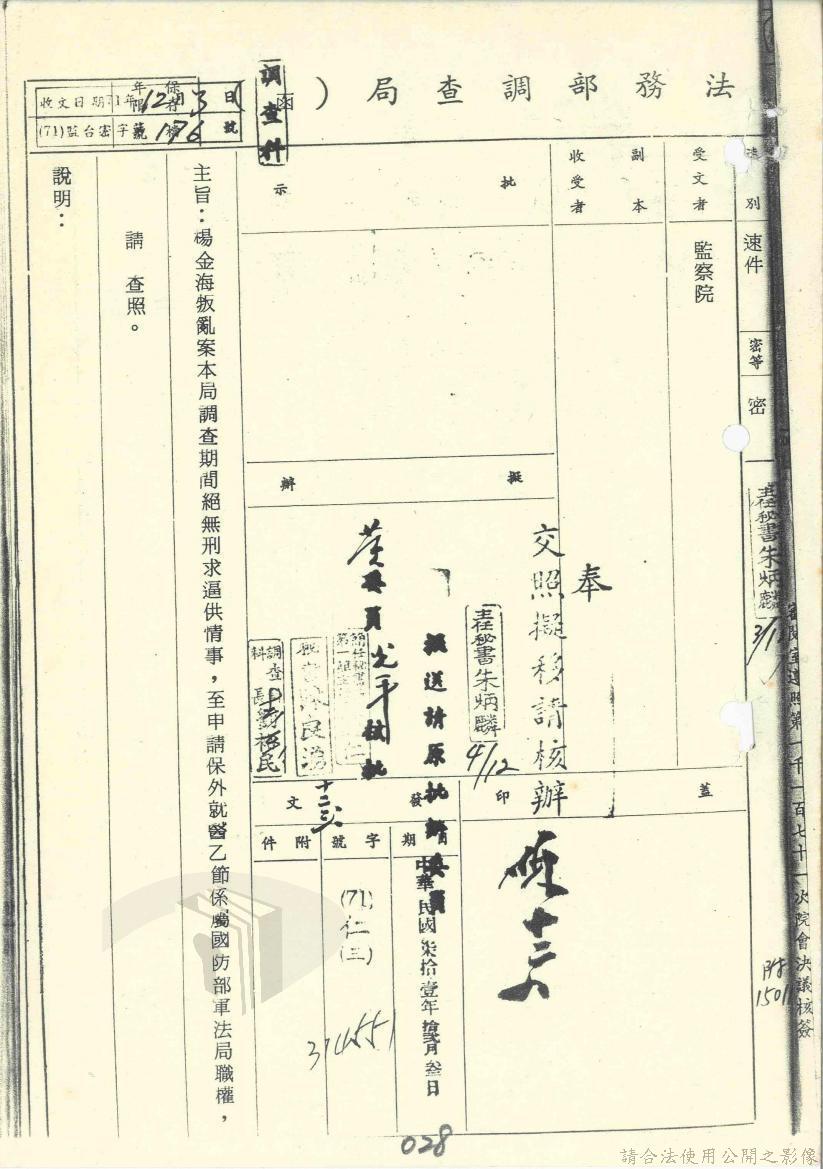 法務部調查局（函）
調查科
保存年限
收文日期71年12月3日
(71)監台密字第176號
檔號
速別
速件
密等
密
受文者
監察院
副本收受者
批示
擬辦
奉
交照擬移請核辦
主任秘書朱炳麟
4/12
擬送請原批辦委員
黃委員光平核批
主任秘書朱炳麟
3/12
調查科長
蓋印
發文
日期
中華民國柒拾壹年拾貳月叁日
字號
(71)仁(三)
374551
附件
主旨：楊金海叛亂案本局調查期間絕無刑求逼供情事，至申請保外就醫乙節係屬國防部軍法局職權，
請 查照。
說明：
第一千一百七十一次院會決議核簽
028
請合法使用公開之影像